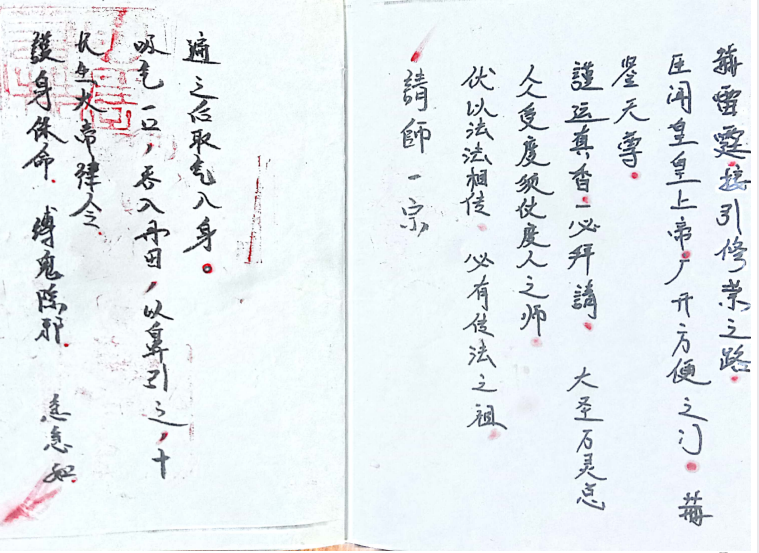 護身保命 缚鬼除邪 急急如
长生大帝律令
吸气一口，吞入丹田，以鼻引之，十
遍之后取气入身。
請師一宗
伏以法法相传 必有传法之祖
人人受度须仗度人之师
謹运真香一必拜請 大圣万灵总
鉴天尊
臣闻皇皇上帝广开方便之门
雷霆接引修之路